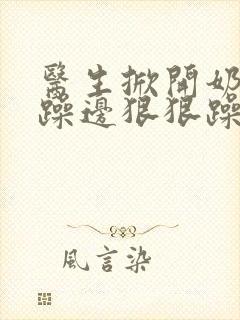 醫生掀開奶
躁邊狠狠躁
風言染